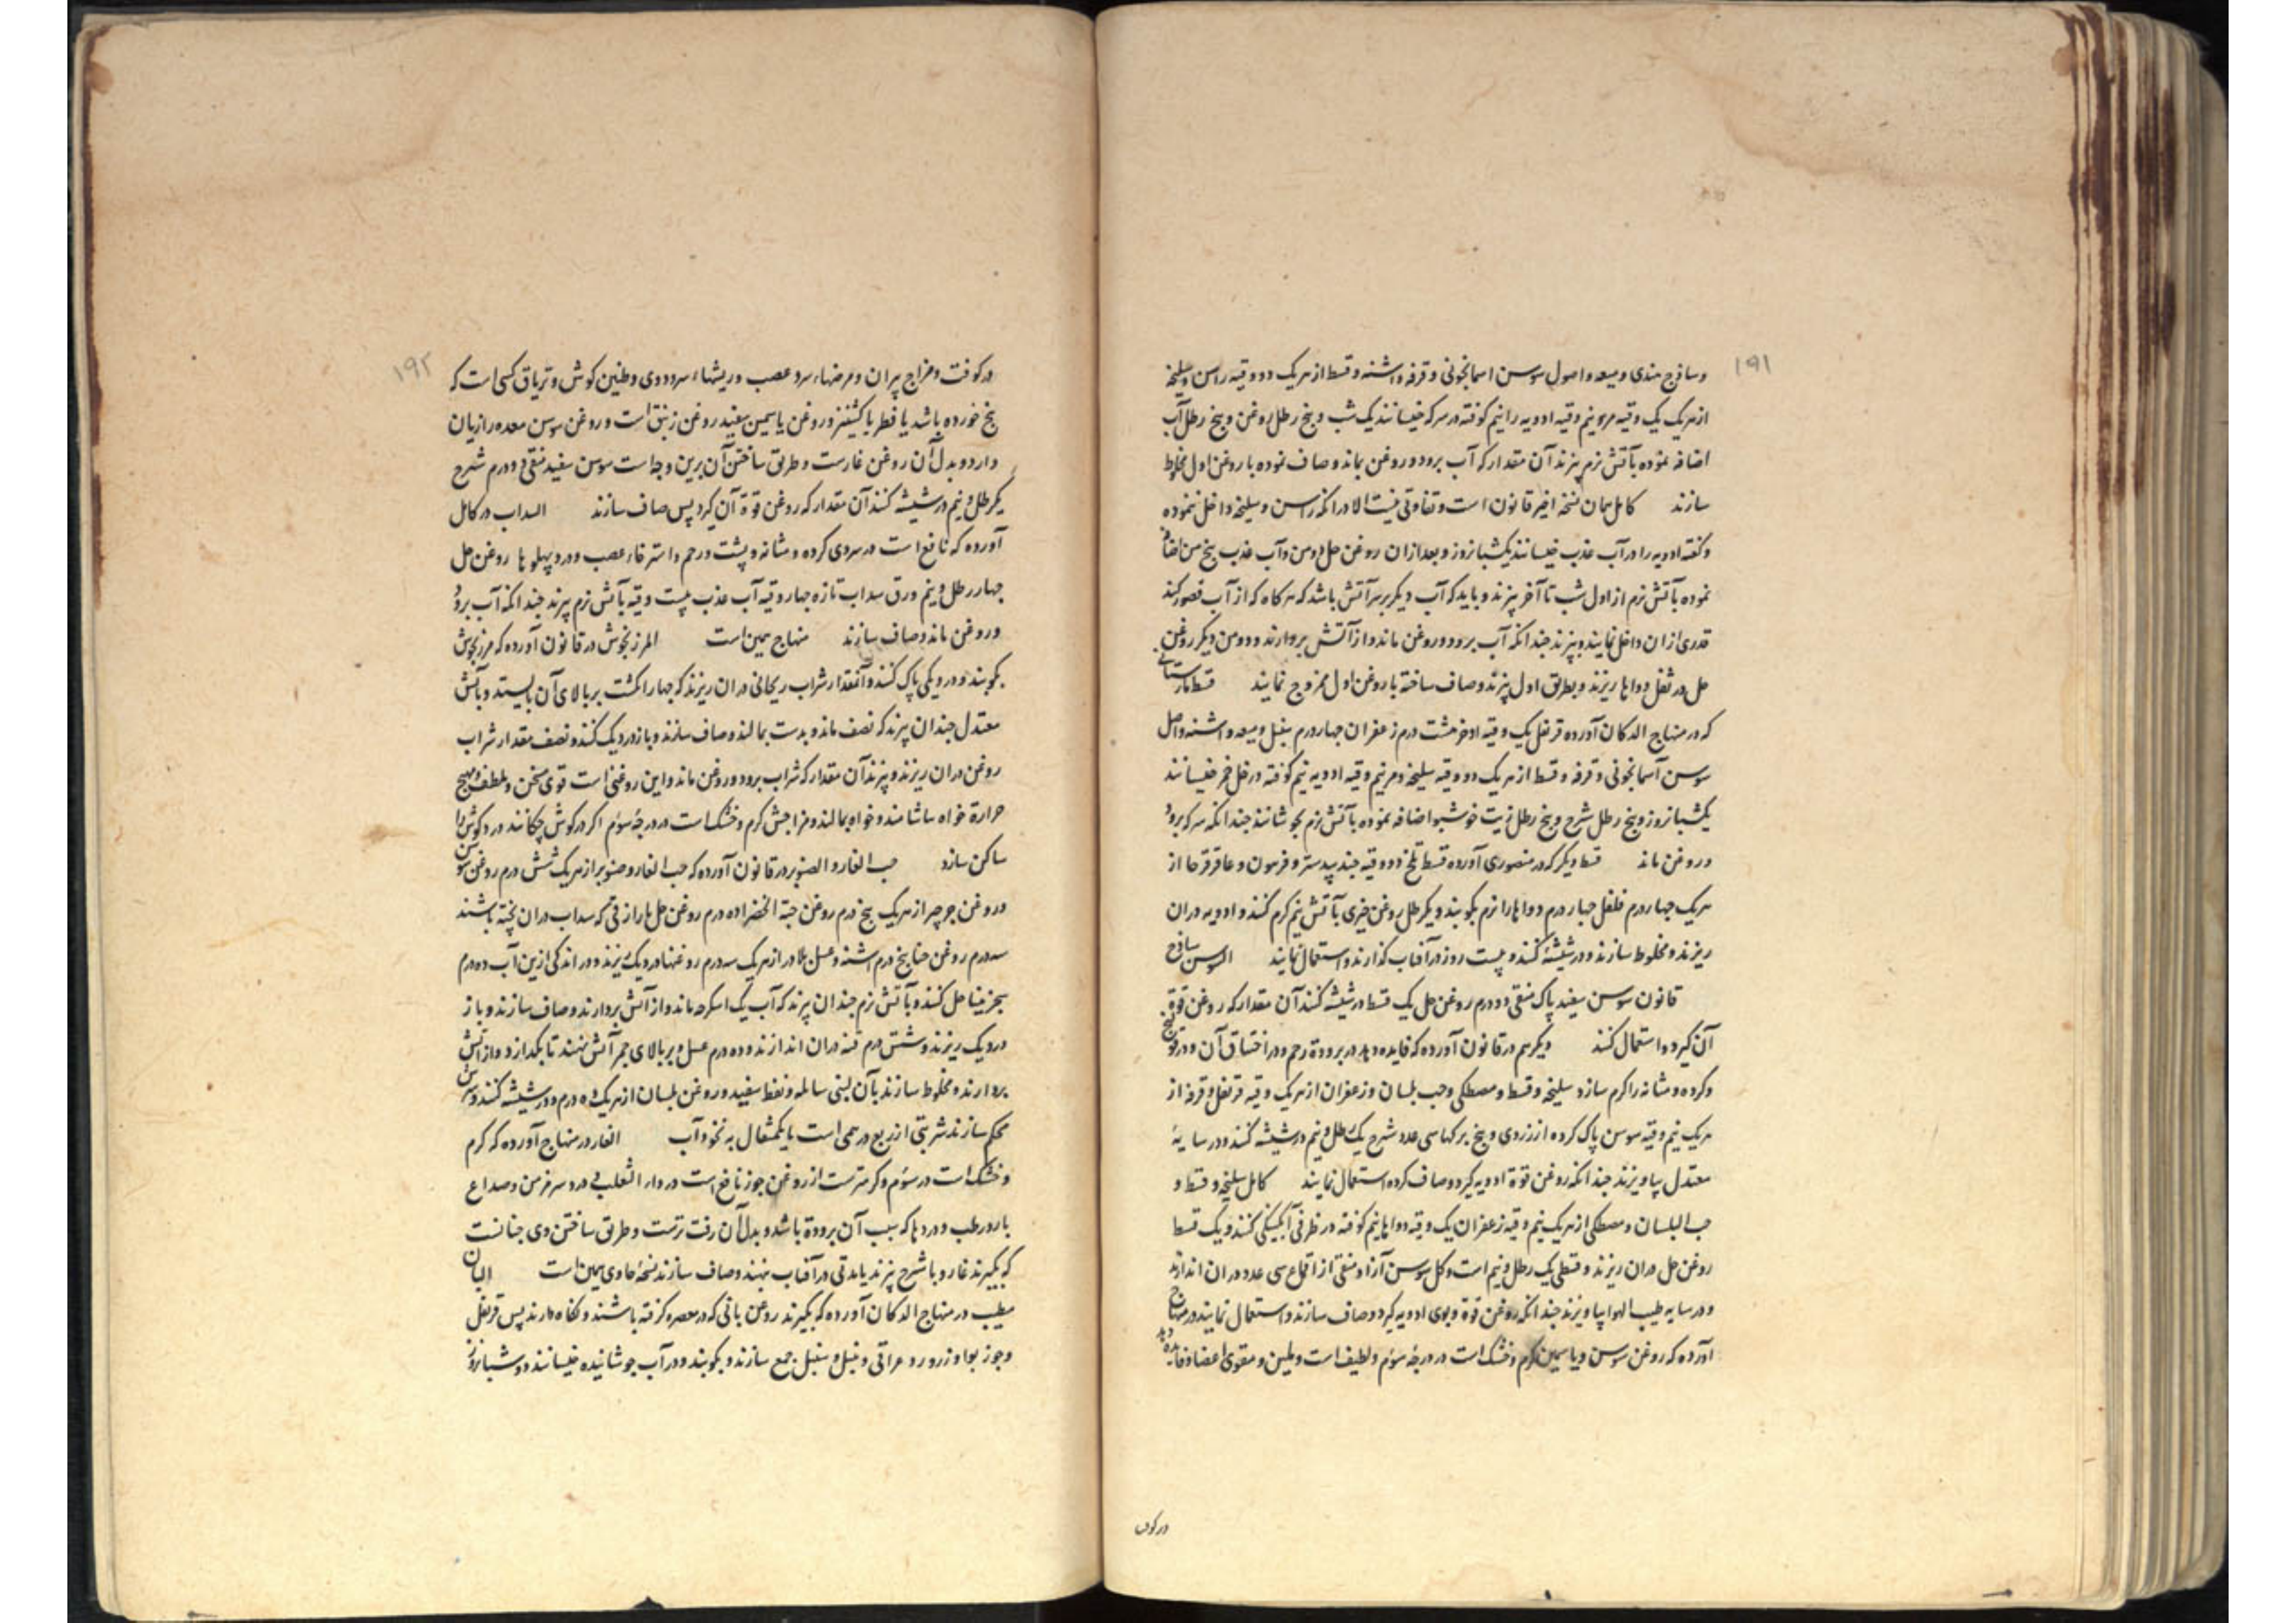 ۱۹۱
وسافج هندی و میعه و اصول سوسن اسمانجونی و قرفه و اشنه و قسط از هر یک دو وقیه راسن و سلیخه
از هر یک یک وقیه مر و نیم وقیه ادویه را نیم کوفته در سرکه خیسانند یک شب و پنج رطل روغن و پنج رطل آب
اضافه نموده بآتش نرم پزند آن مقدار که آب برود و روغن بماند و صاف نموده با روغن اول مخلوط
سازند کامل همان نسخه اخیر قانون است و تفاوتی نیست الا در انکه راسن و سلیخه داخل ننموده
و کفته ادویه را در آب عذب خیسانند یکشبانروز و بعد ازان روغن حل دو من و آب عذب پنج من اضافه
نموده بآتش نرم از اول شب تا آخر پزند و باید که آب دیگر بر سر آتش باشد که هر کاه که از آب قصور کند
قدری ازان داخل نمایند و پزند چندانکه آب برود و روغن ماند و از آتش بردارند و دو من دیگر روغن
حل در ثفل دواها ریزند و بطریق اول پزند و صاف ساخته با روغن اول ممزوج نمایند قسط مارستانی
که در منهاج الدکان آورده قرنفل یک وقیه اذخر هشت درم زعفران چهار درم سنبل و میعه و اشنه و اصل
سوسن آسمانجونی و قرفه و قسط از هر یک دو وقیه سلیخه و مر نیم وقیه ادویه نیم کوفته در خل خمر خیسانند
یکشبانروز و پنج رطل شرج و پنج رطل زیت خوشبو اضافه نموده بآتش نرم بجوشانند چندانکه سرکه برود
و روغن ماند قسط دیگر که در منصوری آورده قسط تلخ دو وقیه جندبیدستر و فرسون و عاقرقرحا از
هر یک چهار درم فلفل چهار درم دواها را نرم بکوبند و یکرطل روغن خیری بآتش نیم کرم کنند و ادویه دران
ریزند و مخلوط سازند و در شیشه کنند و بیست روز در آفتاب کذارند و استعمال نمایند السوسن ساذج
قانون سوسن سفید پاک منقی دو درم روغن حل یک قسط در شیشه کنند آن مقدار که روغن قوة
آن کیرد و استعمال کنند دیگر هم در قانون آورده که فایده دهد در برودة رحم و در اختناق آن و در قولنج
و کرده و مثانه را کرم سازد سلیخه و قسط و مصطکی و حب بلسان و زعفران از هر یک وقیه قرنفل و قرفه از
هر یک نیم وقیه سوسن پاک کرده از زردی و پنج برکها سی عدد شرج یک رطل و نیم در شیشه کنند و در سایهٔ
معتدل بیاویزند چندانکه روغن قوة ادویه کیرد و صاف کرده استعمال نمایند کامل سلیخه و قسط و
حب البلسان و مصطکی از هر یک نیم وقیه زعفران یک وقیه دواها نیم کوفته در ظرفی آبکینکی کنند و یک قسط
روغن حل دران ریزند و قسطی یک رطل و نیم است و کل سوسن آزاد منقی از اقماع سی عدد دران اندازند
و در سایه طیب الهوا بیاویزند چندانکه روغن قوة و بوی ادویه کیرد و صاف سازند و استعمال نمایند در منهاج
آورده که روغن سوسن و یاسمین کرم و خشک است در درجهٔ سوم و لطیف است و ملین و مقوی اعضا و فایده دهد
در کوف
۱۹۲
در کوفت و مزاج پیران و مرضهاء سرد عصب و ریشهاء سر و دوی و طنین کوش و تریاق کسی است که
بنج خورده باشد یا فطر یا کشنیز و روغن یاسمین سفید روغن زنبق است و روغن سوسن معده را زیان
دارد و بدل آن روغن غارست و طریق ساختن آن برین وجه است سوسن سفید منقی دو درم شرح
یکرطل و نیم در شیشه کنند آن مقدار که روغن قوة آن کیرد پس صاف سازند السداب در کامل
آورده که نافع است در سردی کرده و مثانه و پشت و رحم و استرخاء عصب و درد پهلوها روغن حل
چهار رطل و نیم ورق سداب تازه چهار وقیه آب عذب بیست وقیه بآتش نرم پزند چندانکه آب برود
و روغن ماند و صاف سازند منهاج همین است المرزنجوش در قانون آورده که مرزنجوش
بکوبند و در دیکی پاک کنند و آنمقدار شراب ریحانی دران ریزند که چهار انکشت بر بالای آن بایستد و بآتش
معتدل چندان پزند که نصف ماند و بدست بمالند و صاف سازند و باز در دیک کنند و نصف مقدار شراب
روغن دران ریزند و پزند آن مقدار که شراب برود و روغن ماند و این روغنی است قوی مسخن و ملطف و مهیج
حرارة خواه بیاشامند و خواه بمالند و مزاجش کرم و خشک است در درجهٔ سوم اکر در کوش چکانند درد کوش را
ساکن سازد حب الغار و الصنوبر در قانون آورده که حب الغار و صنوبر از هر یک شش درم روغن سوسن
و روغن جوجیر از هر یک پنج درم روغن حبة الخضرا ده درم روغن حل مازارقی که سداب دران پخته باشند
سه درم روغن حنا پنج درم اشنه و عسل بلادر از هر یک سه درم روغنها در دیک ریزند و در اندکی ازین آب ده درم
سجزینا حل کنند و بآتش نرم چندان پزند که آب یک اسکرجه ماند و از آتش بردارند و صاف سازند و باز
در دیک ریزند و شش درم قنه دران اندازند و ده درم عسل و بر بالای جمر آتش نهند تا بکدازد و از آتش
بردارند و مخلوط سازند بآن لبنی سائله و نفط سفید و روغن بلسان از هر یک ده درم و در شیشه کنند و سرش
محکم سازند شربتی از ربع درهمی است یا یکمثقال به نخود آب الغار در منهاج آورده که کرم
و خشک است در سوم و کرمترست از روغن جوز نافع است در داء الثعلب و درد سر مزمن و صداع
بارد رطب و دردها که سبب آن برودة باشد و بدل آن زفت ترست و طریق ساختن وی چنانست
که بکیرند غار و با شرج پزند یا مدتی در آفتاب نهند و صاف سازند نسخهٔ حاوی همین است البان
مطیب در منهاج الدکان آورده که بکیرند روغن بانی که در معصره کرفته باشند و نکاه دارند پس قرنفل
و جوز بوا و زرورد عراقی و نیل و سنبل جمع سازند و بکوبند و در آب جوشانیده خیسانند دو شبانروز